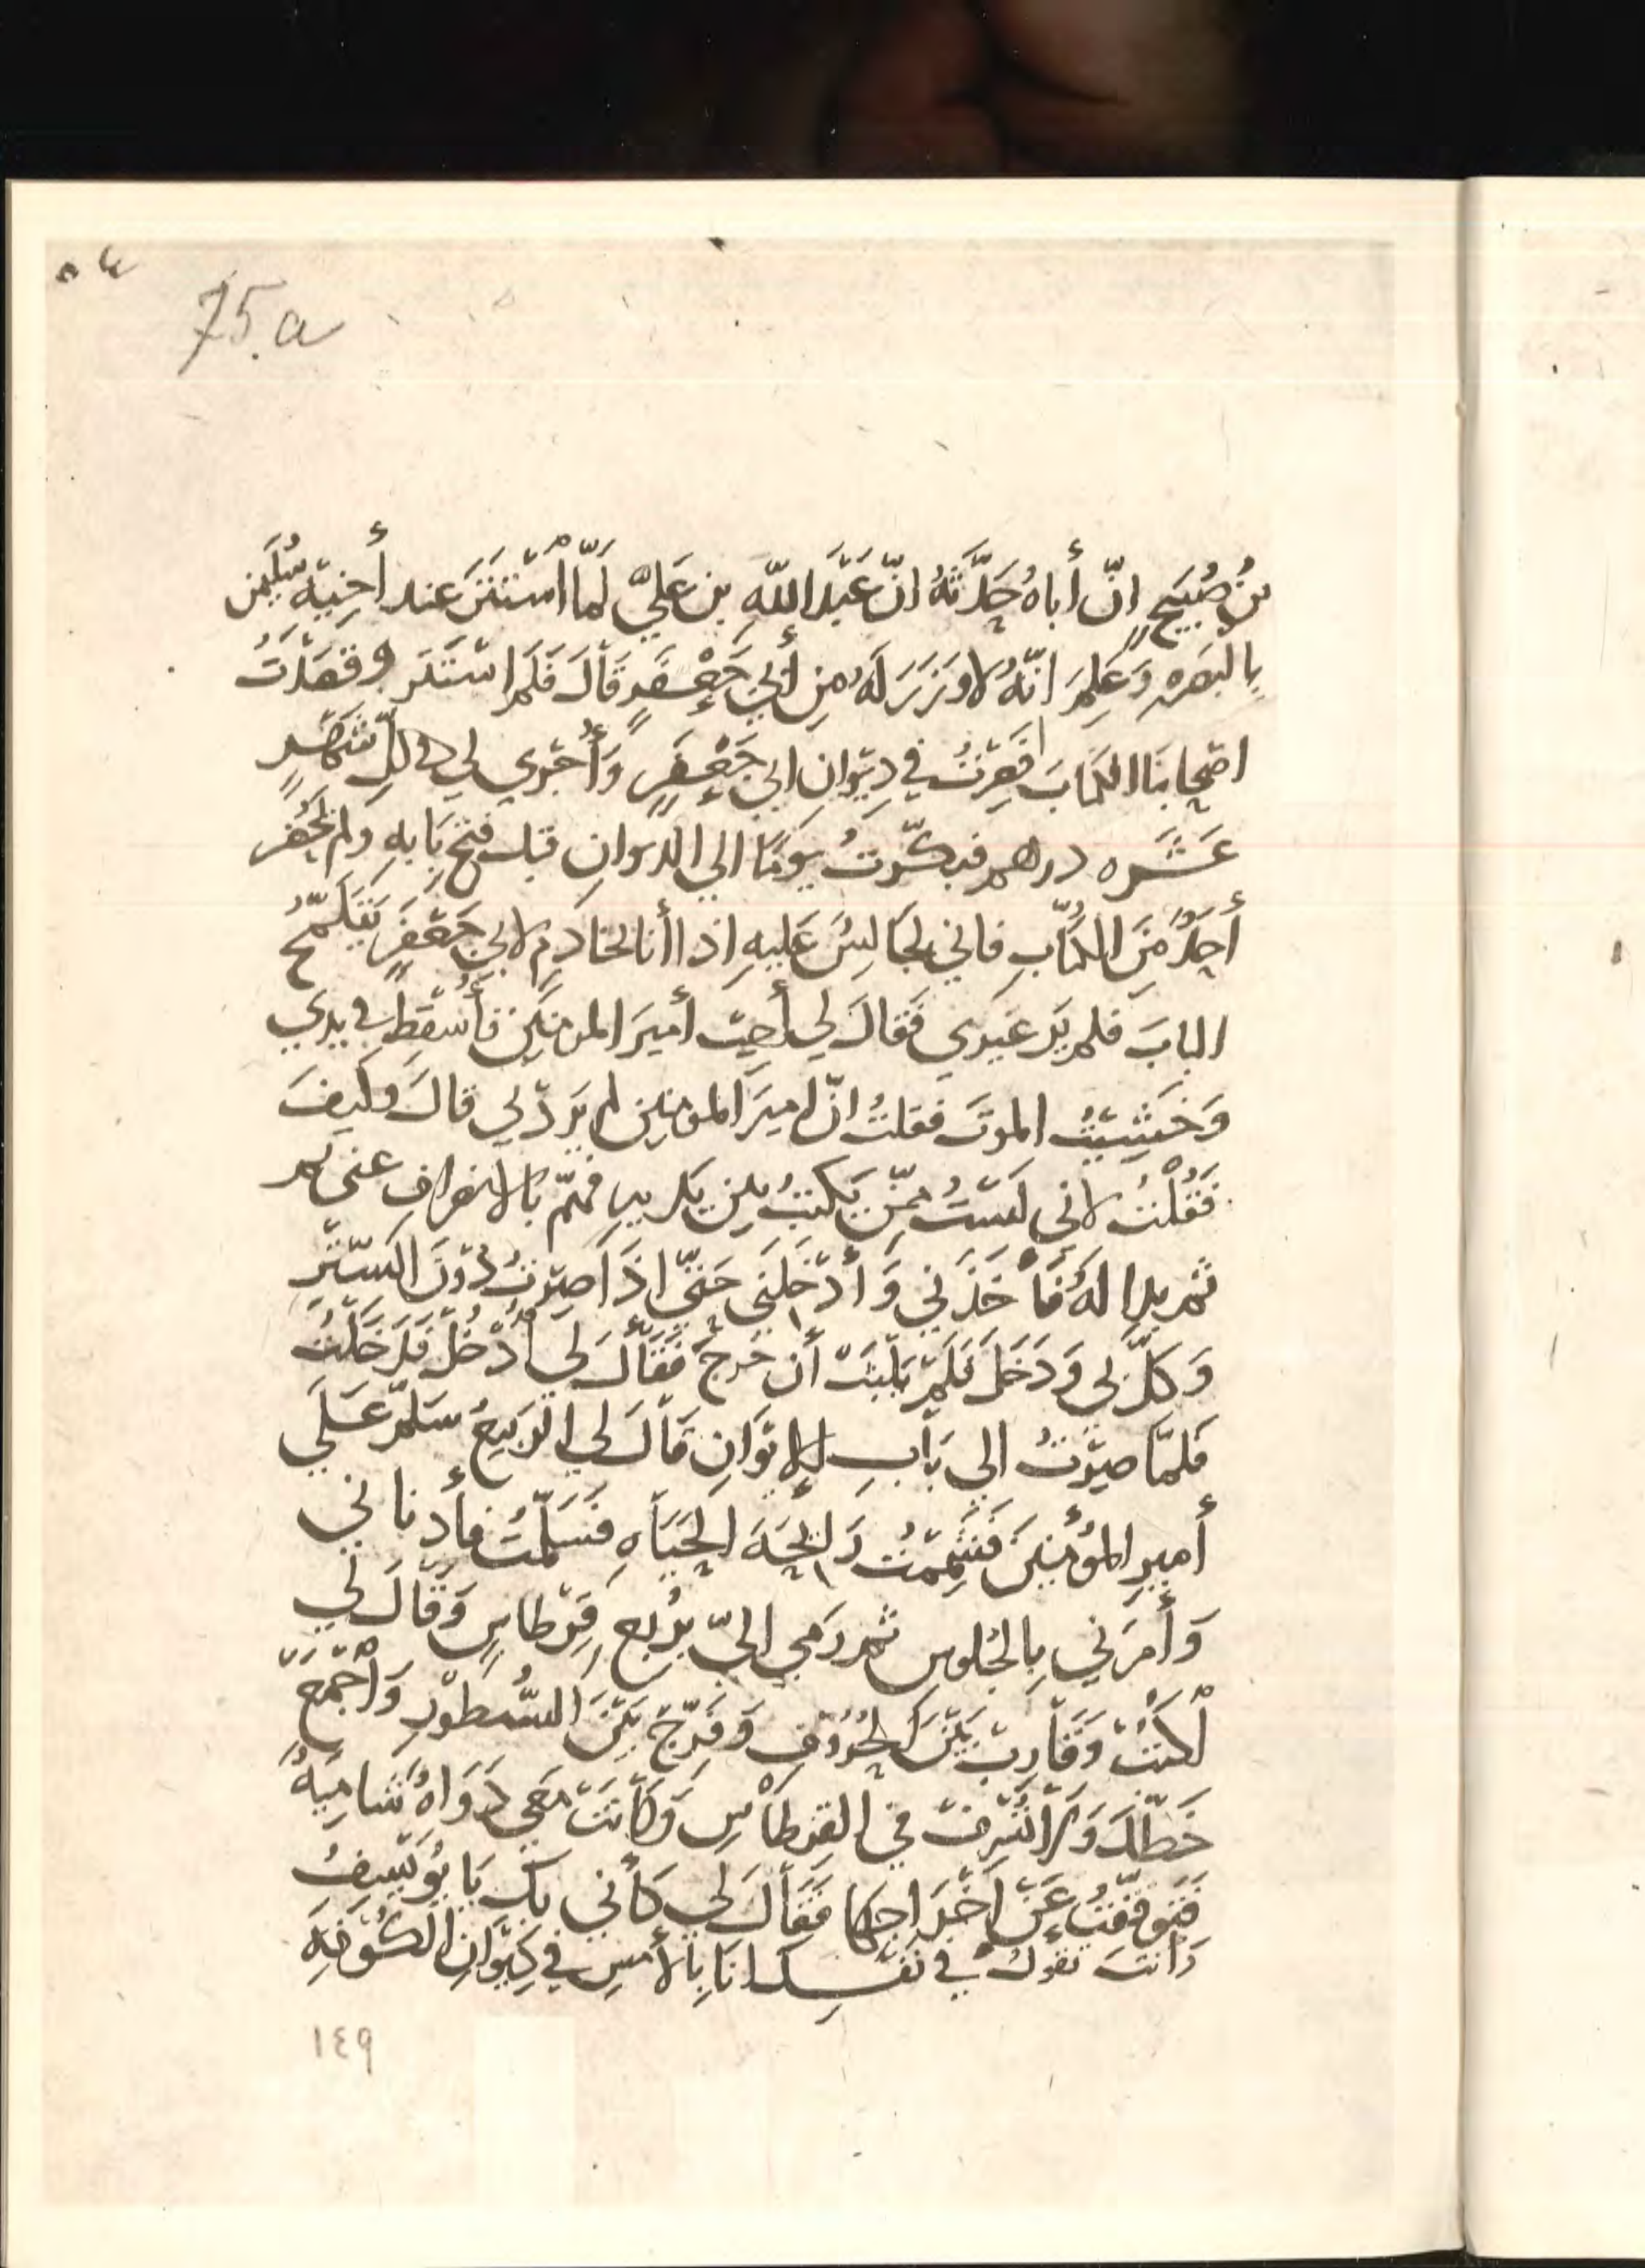 75.a
بنُ صُبَيحٍ انّ أباهُ حَدَّثَهُ انّ عَبْدَ اللّٰهِ بن عَليّ لَمّا اسْتَتَرَ عند أخِيْهِ سُلَيمٰن
بالبَصره وَعَلِمَ انّهُ لا وَزَرَ لَهُ مِن أبي جَعْفَرٍ قَالَ فَلم استَتَر وقَصَدْتُ
اصحَابنا الكتابَ فَصِرْتُ في دِيْوانِ ابي جَعْفَرٍ وَأُجْرِي لي كل شَهْرٍ
عَشَره دراهم فبكّرتُ يَومًا الي الديوانِ قبل فتح بَابهِ ولم يحُضر
أحدٌ مِنَ الكُتّابِ فاني لجَالسٌ عَليهِ اذا أنا بخادِمٍ لابي جَعْفَرٍ
البابَ فلم يَر غيري فَقالَ لي أجِبْ أميرَ المومنين فأُسْقِطَ في يدي
وَخَشِيْتُ الموتَ فقلتُ انّ اميرَ المومنين لم يَرِدْني قالَ وكيفَ
فَقُلْتُ لاني لَسْتُ ممّن يَكتبُ بين يديه فهمّ بالانصراف عنى
ثم بدا لهُ فأَخَذَني وَأدْخَلَني حَتّي اذَا صِرْتُ دُوْنَ السّتْرِ
وَكّلَ بي وَدَخَلَ فَلَمْ يَلْبَثْ أن خَرجَ فَقَالَ لي اُدْخُلْ فَدَخَلْتُ
فلمّا صِرْتُ الي بَابِ الايْوَانِ قَالَ لي الرّبيعُ سَلّم عَلَي
أميرِ المُؤْمِنينَ فَشَمِمْتُ رَائحَةَ الحَيَاهِ فَسَلّمْتُ فأدناني
وَأَمرَني بِالجُلوسِ ثم رَمي اليّ برُبع قِرْطاسٍ وَقالَ لي
اُكتُبْ وَقَاْرِبْ بَيْنَ الحُرُوْفِ وَفَرّجْ بَيْنَ السُّطُوْرِ وَاجْمَعْ
خَطّكَ وَلَا تُسْرِفْ في القِرْطَاْسِ وَكَاْنَتْ مَعي دَوَاهٌ شَامِيَةٌ
فَتَوقّفْتُ عَنْ اخْرَاجِهَا فَقَاْلَ لي كَأني بك يَا يُوْسِفُ
وَانتَ تقولُ في نَفْسِكَ انَا بالأمسِ في دِيْوَانِ الكُوْفَهِ
١٤٩